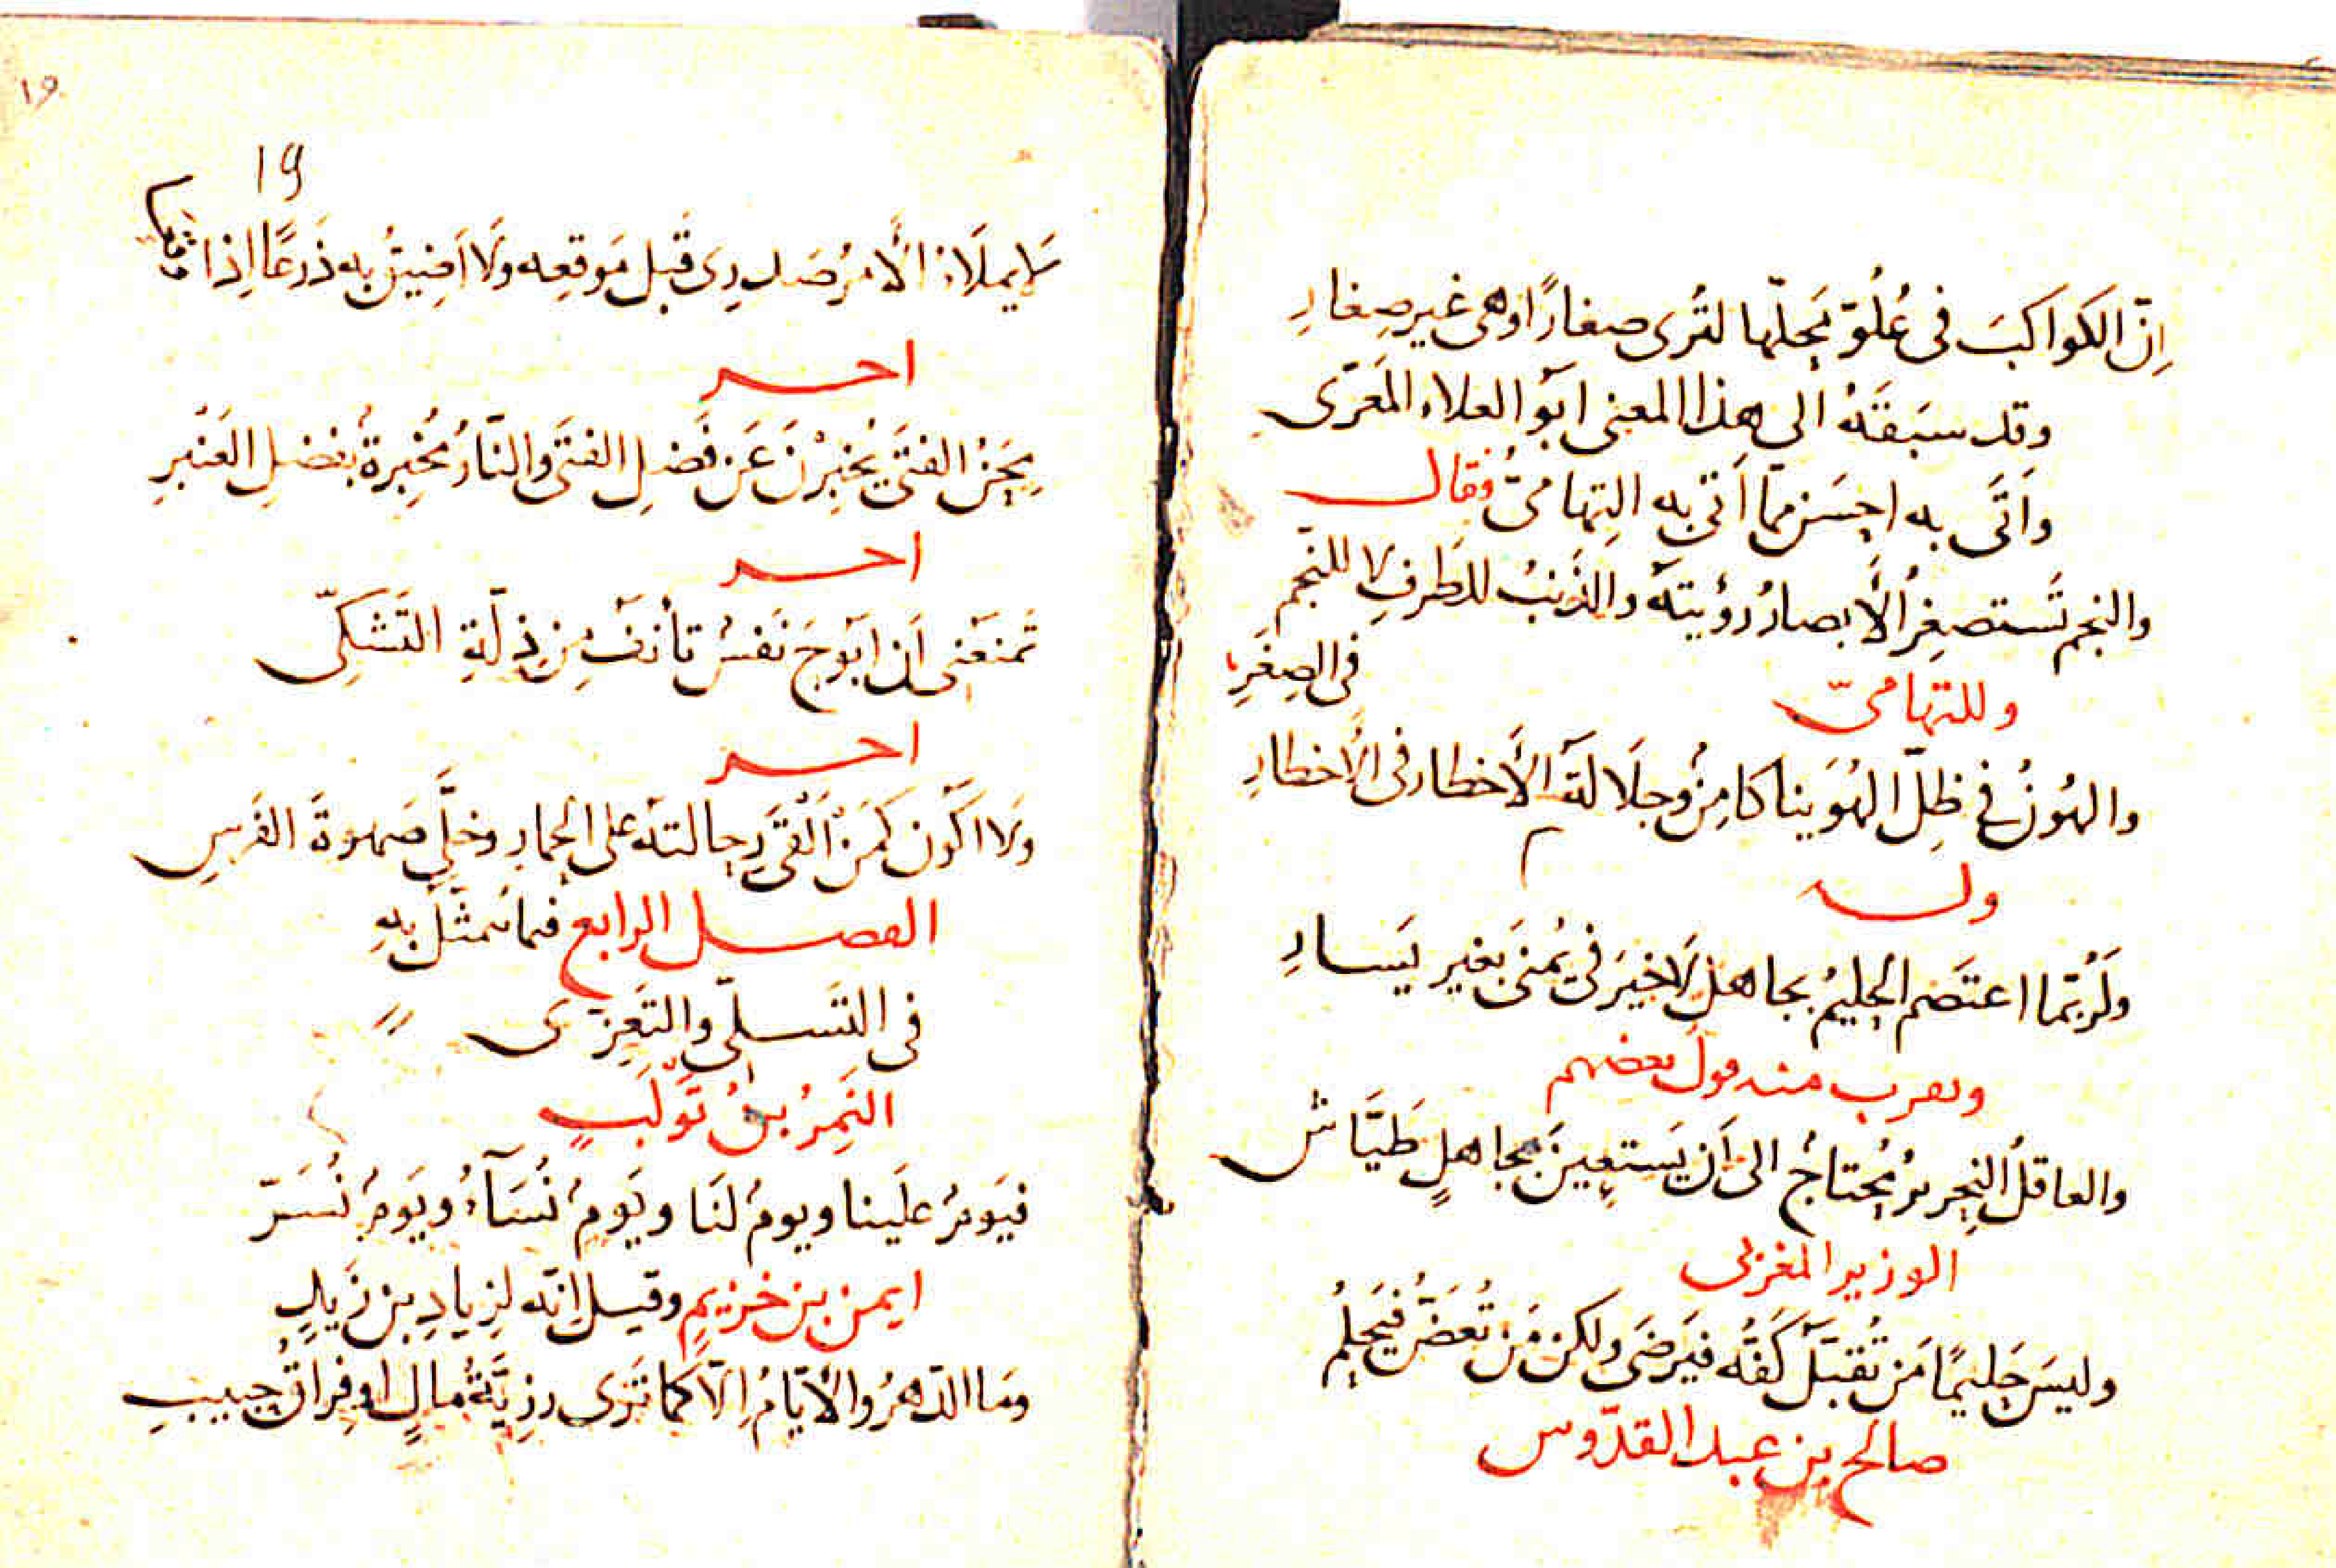 اِنّ الكَواكبَ فى عُلُوّ مَحلّها لتُرى صغارًا وهى غير صِغارِ
وقد سبَقَهُ الى هذا المعنى ابَو العلاء المَعَرّى
واَتَى به احسَن ممّا اَتى به التِهامىّ فقال
والنجم تَستصغِرُ الأَبصارُ رؤيتَهُ والذَنبُ للطَرفِ لا للنَجم
فى الصِغَرِ
وللتهامىّ
والهُونُ فى ظِلّ الهُوَينا كامِنٌ وجلَالَة الأَخطار فى الأَخطارِ
وله
ولَرُبّما اعتَصَم الحليمُ بجاهلٍ لَاخيَر فى يُمنَى بغير يَسارِ
ويقرب منه قول بعضهم
والعاقلُ النِحريرُ مُحتاجٌ الى اَن يَستعِينَ بجاهلٍ طَيَّاش
الوزير المغربى
وليسَ حَليمًا مَن تُقبَّلُ كَفُّه فيَرضَى ولكن مَن تُعَضّ فيَحلمُ
صالح بن عبد القدّوس
١٩
١٩
لا يملَاُ الأَمرُ صَدرِى قَبل مَوقعِه ولَا اَضِيقُ به ذَرعًا اِذا وقعا
اخر
مِحَنُ الفتَى يُخبِرْنَ عَن فَضلِ الفتَى والنّارُ مُخبِرةٌ بفَضلِ العَنبرِ
اخر
تَمنَعُنى اَن ابَوحَ نَفسٌ تأنَفُ مِن ذِلّةِ التَشكّى
اخر
ولَا اَكُون كَمَنْ اَلْقَى رِحالتَه على الحِمارِ وخلّى صَهوةَ الفَرسِ
الفصل الرابع فيما يُتمثّل بِهِ
فى التَسلّى والتَعزّى
النَمِرُ بنُ تَولَبٍ
فيَومٌ علَينا ويومٌ لنَا ويَومٌ نُسَآءُ ويَومٌ نُسَرّ
ايمن بن خزيمٍ وقيل اِنّه لزِيادِ بن زَيدٍ
ومَا الدّهرُ والأَيّامُ اِلّا كما تَرَى رزِيّةُ مالٍ او فِراقُ حَبيبِ